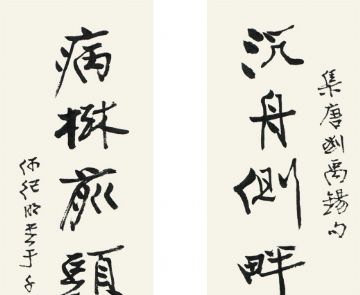 集唐劉禹錫句
沉舟側畔
病樹前頭